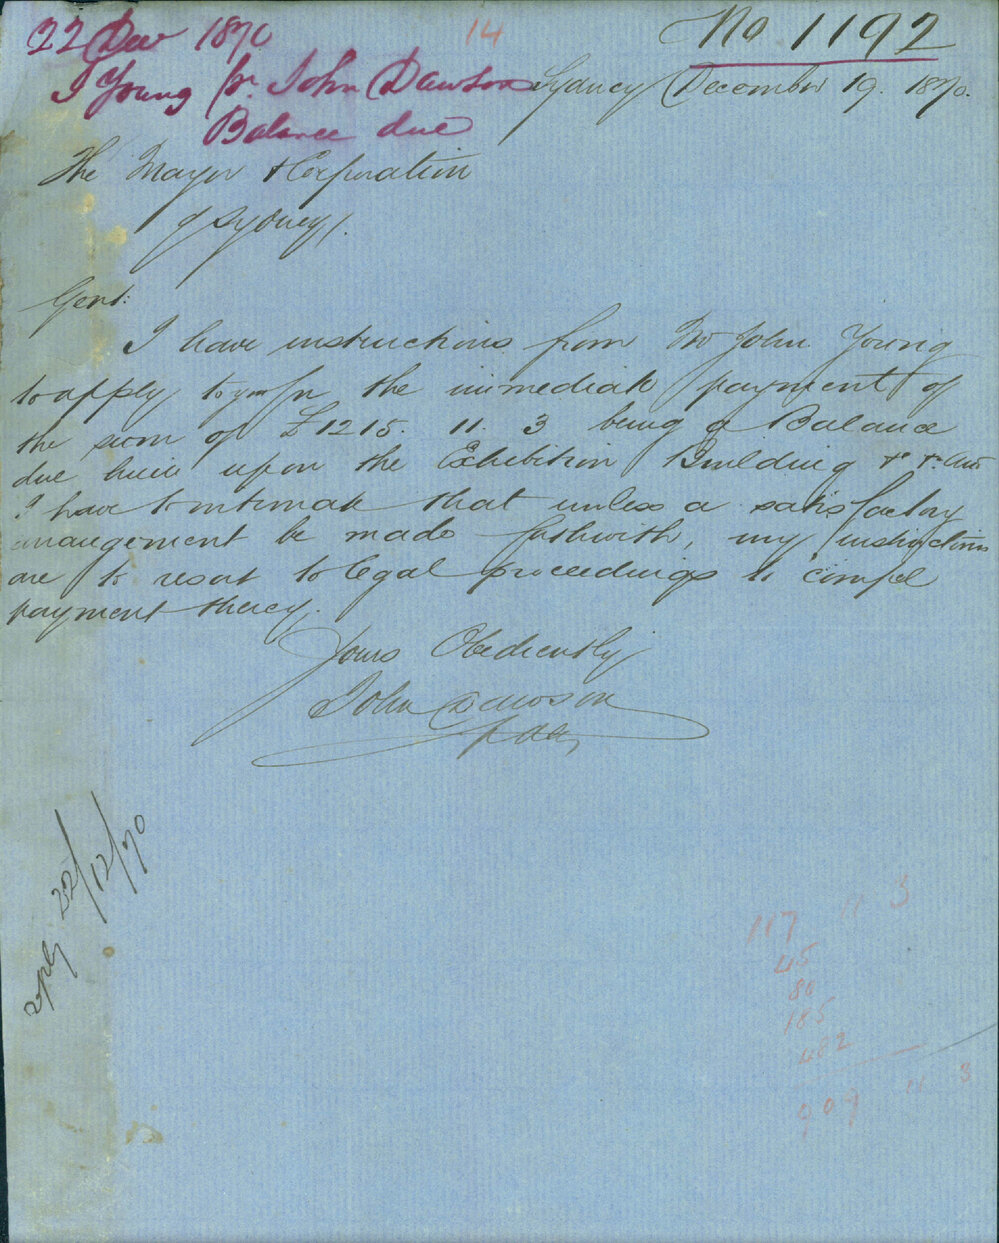 22 Dec 1870
14
No 1192
J Young pr. John Dawson
Balance due
Sydney December 19. 1870.
The Mayor & Corporation
of Sydney/.
Gent:
I have instructions from Mr John Young
to apply to you for the immediate payment of
the sum of £1215. 11. 3 being a Balance
due him upon the Exhibition Building &c &c And
I have to intimate that unless a satisfactory
arrangement be made forthwith, my instructions
are to resort to legal proceedings to compel
payment thereof.
Yours Obediently
John Dawson
reply 22/12/70
117 11 3
45
80
185
482
909 11 3